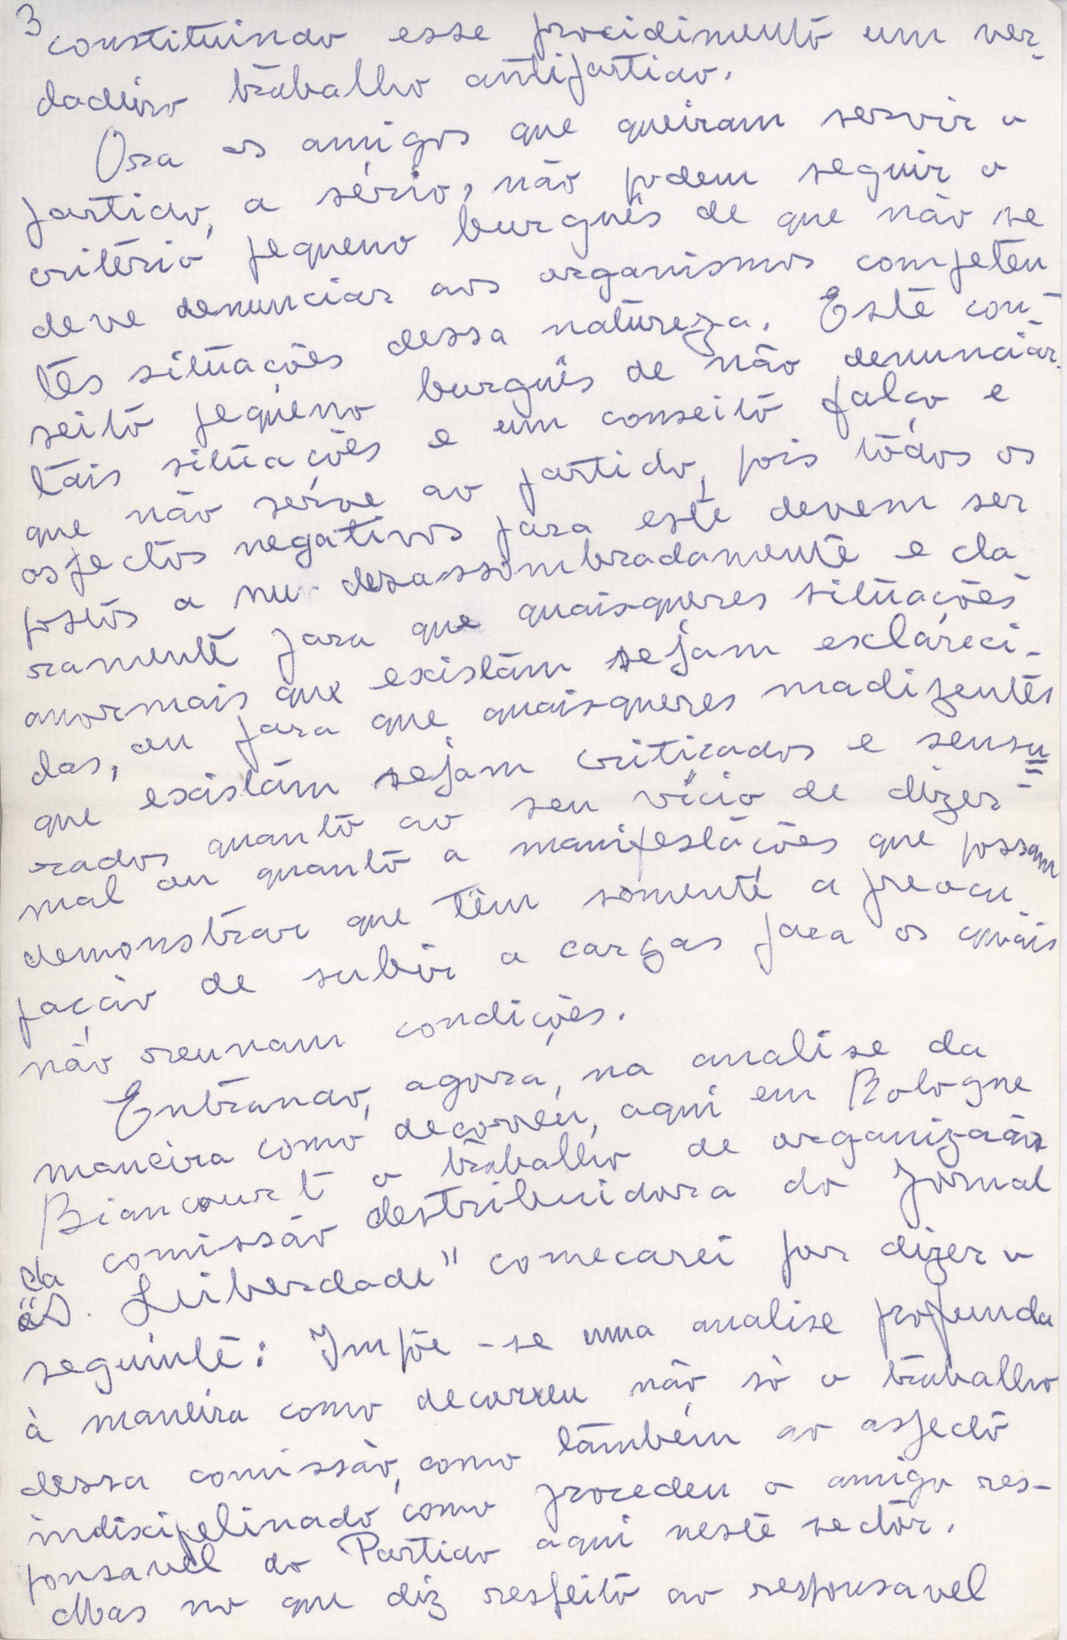 3
constituindo esse procidimento um ver-
dadeiro trabalho antipartido.
Ora os amigos que queiram servir o
partido, a sério, não podem seguir o
critério pequeno burguês de que não se
deve denunciar aos organismos competen
tes situações dessa natureza. Este con-
seito pequeno burguês de não denunciar
tais situações e um conseito falço e
que não serve ao partido, pois todos os
aspectos negativos para este devem ser
postos a nu desassombradamente e cla
ramente para que quaisqueres situações
anormais que existam sejam esclareci-
das, ou para que quaisqueres madizentes
que existam sejam criticados e sensu
rados quanto ao seu vício de dizer
mal ou quanto a manifestações que possam
demonstrar que têm somente a preocu
pação de subir a cargas para os quais
não reunam condições.
Entrando, agora, na analise da
maneira como decorreu, aqui em Bologne
Biancourt o trabalho de organização
da comissão destribuidora do Jornal
"D. Luiberdade" comecarei por dizer o
seguinte: Impõe-se uma analise profunda
à maneira como decorreu não só o trabalho
dessa comissão, como também ao aspecto
indiscipelinado como procedeu o amigo res-
ponsavel do Partido aqui neste sector.
Mas no que diz respeito ao responsavel